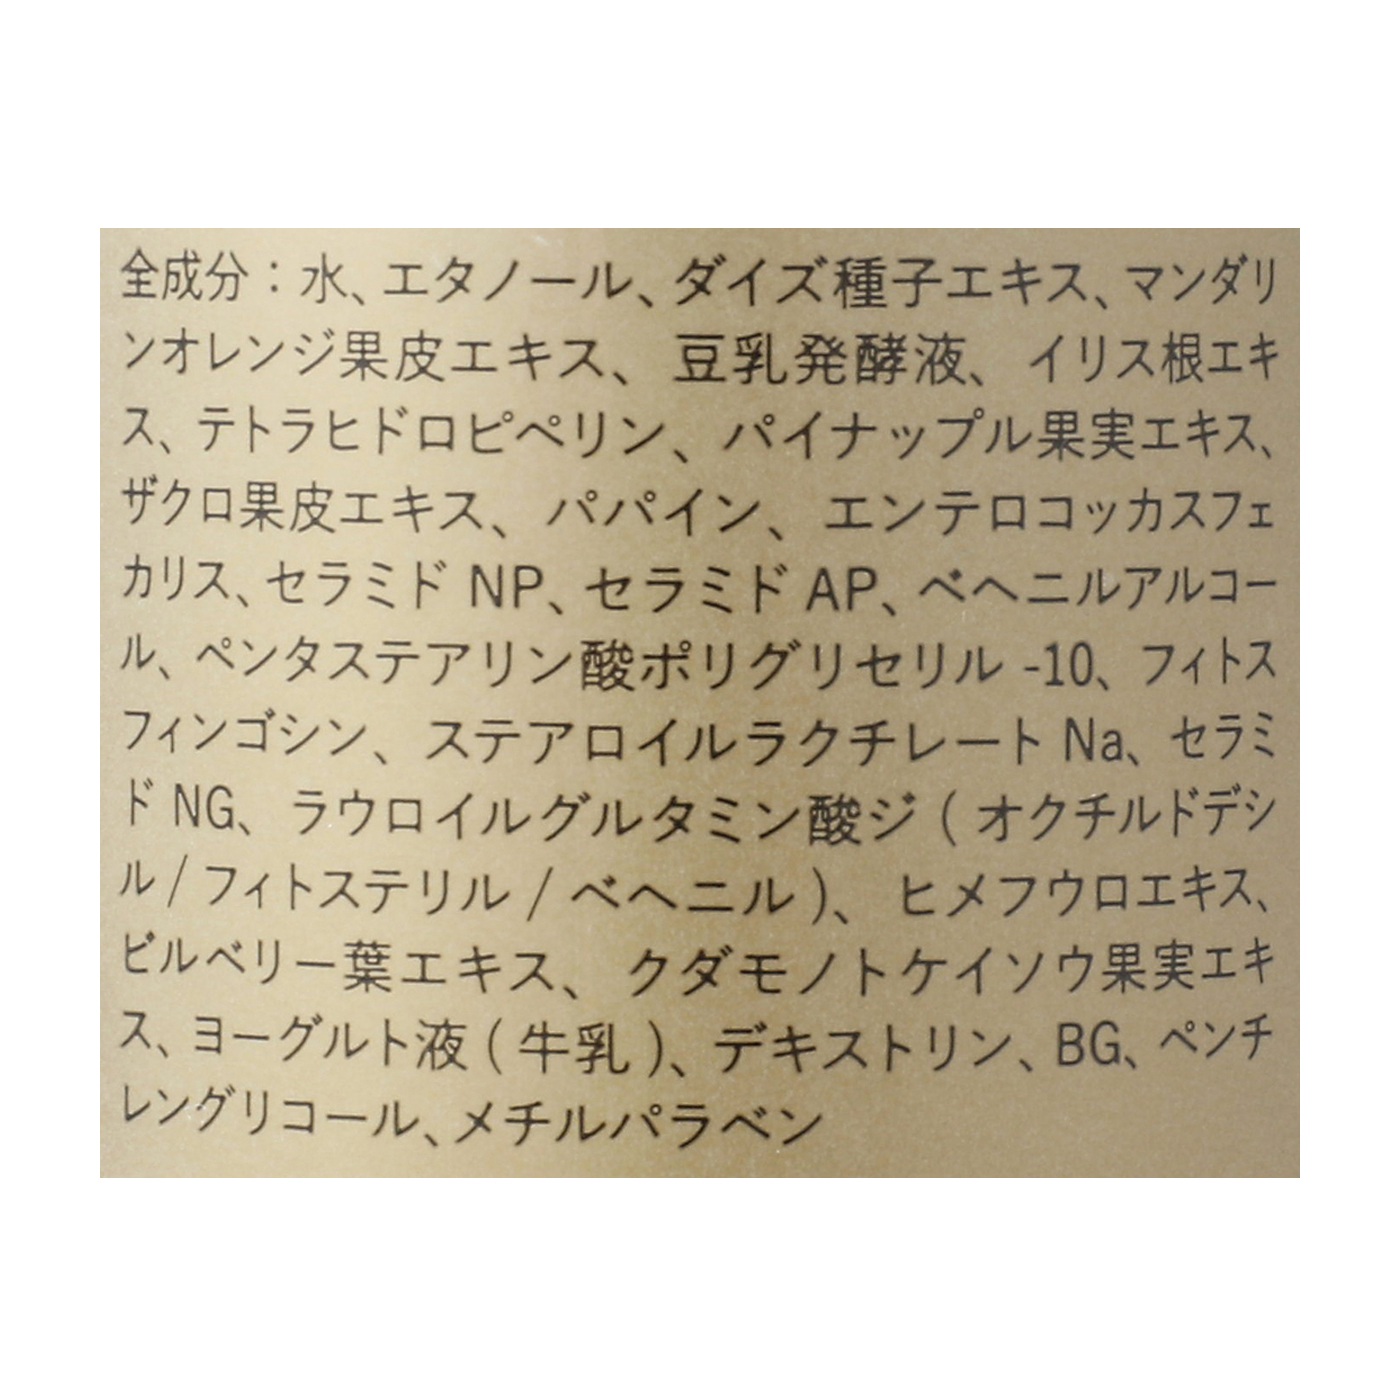 全成分：水、エタノール、ダイズ種子エキス、マンダリ
ンオレンジ果皮エキス、豆乳発酵液、イリス根エキ
ス、テトラヒドロピペリン、パイナップル果実エキス、
ザクロ果皮エキス、パパイン、エンテロコッカスフェ
カリス、セラミド NP、セラミド AP、ベヘニルアルコー
ル、ペンタステアリン酸ポリグリセリル -10、フィトス
フィンゴシン、ステアロイルラクチレート Na、セラミ
ド NG、ラウロイルグルタミン酸ジ ( オクチルドデシ
ル / フィトステリル / ベヘニル )、ヒメフウロエキス、
ビルベリー葉エキス、クダモノトケイソウ果実エキ
ス、ヨーグルト液 ( 牛乳 )、デキストリン、BG、ペンチ
レングリコール、メチルパラベン